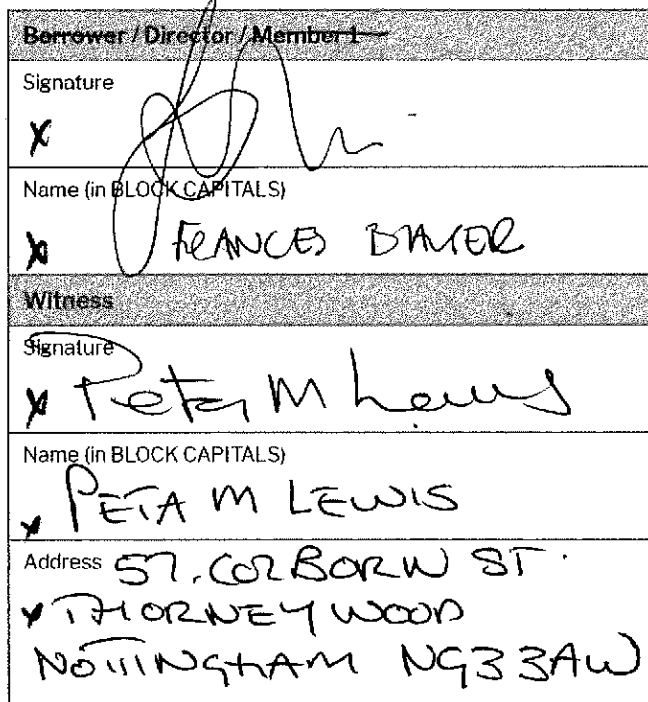 Borrower / Director / Member 1
Signature
X
Name (in BLOCK CAPITALS)
X FRANCES
Witness
Signature
X Peta M Lewis
Name (in BLOCK CAPITALS)
X PETA M LEWIS
Address 57, COLBORN ST.
X THORNEYWOOD
NOTTINGHAM NG3 3AW